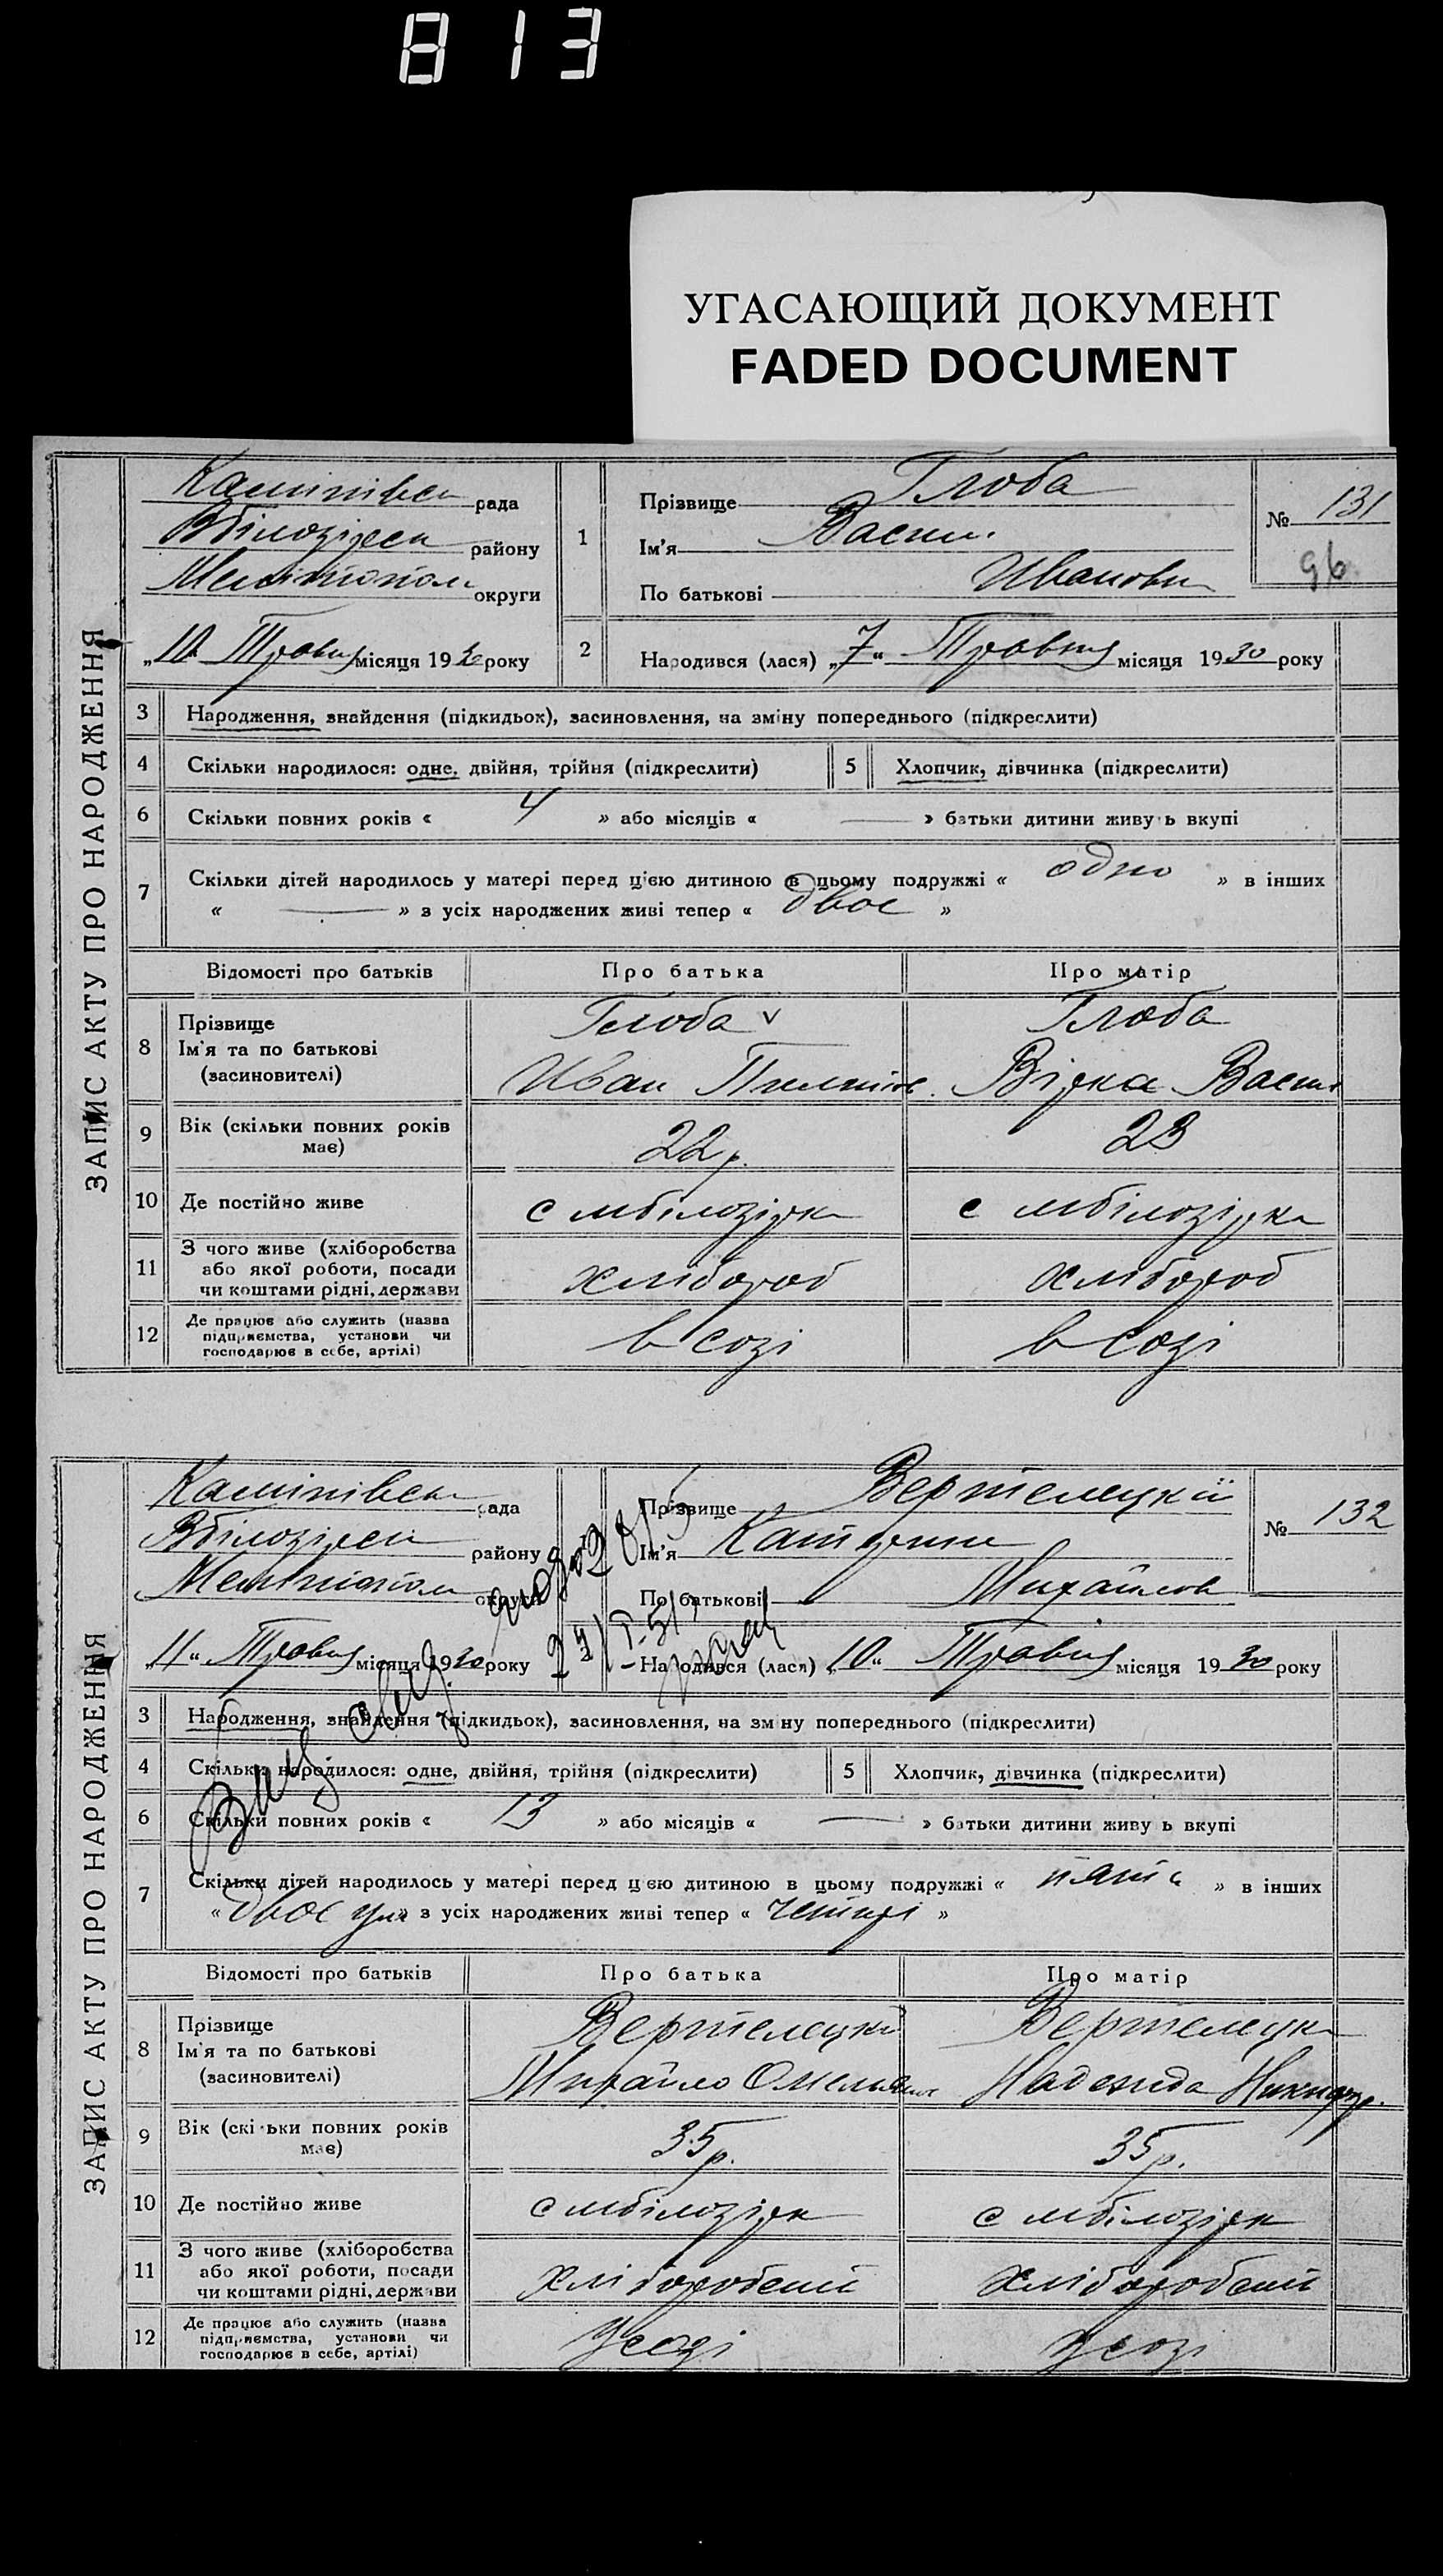 813
УГАСАЮЩИЙ ДОКУМЕНТ
FADED DOCUMENT
ЗАПИС АКТУ ПРО НАРОДЖЕННЯ
рада
району
округи
„10“ Травня місяця 1930 року
1
Прізвище Глоба
Ім'я Васил
По батькові Иванови
№ 131
96
2
Народився (лася) „7“ Травня місяця 1930 року
3 Народження, знайдення (підкидьок), засиновлення, на зміну попереднього (підкреслити)
4 Скільки народилося: одне, двійня, трійня (підкреслити)
5 Хлопчик, дівчинка (підкреслити)
6 Скільки повних років « 4 » або місяців « — » батьки дитини живуть вкупі
7 Скільки дітей народилось у матері перед цією дитиною в цьому подружжі « одно » в інших
« — » з усіх народжених живі тепер « двое »
Відомості про батьків Про батька Про матір
8 Прізвище
Ім'я та по батькові
(засиновителі)
Глоба v
Иван
Глоба
Вірка Васил
9 Вік (скільки повних років має) 22 р. 23
10 Де постійно живе с мбілозірка с мбілозірка
11 З чого живе (хліборобства
або якої роботи, посади
чи коштами рідні, держави
хлібороб хлібороб
12 Де працює або служить (назва
підприємства, установи чи
господарює в себе, артілі)
в созі в созі
ЗАПИС АКТУ ПРО НАРОДЖЕННЯ
рада
району
округи
„11“ Травня місяця 1930 року
Прізвище Вертелецкий
Ім'я Катерина
По батькові Михайлов
№ 132
Народився (лася) „10“ Травня місяця 1930 року
3 Народження, знайдення (підкидьок), засиновлення, на зміну попереднього (підкреслити)
4 Скільки народилося: одне, двійня, трійня (підкреслити)
5 Хлопчик, дівчинка (підкреслити)
6 Скільки повних років « 13 » або місяців « — » батьки дитини живуть вкупі
7 Скільки дітей народилось у матері перед цією дитиною в цьому подружжі « пять » в інших
« двое » з усіх народжених живі тепер « четирі »
Відомості про батьків Про батька Про матір
8 Прізвище
Ім'я та по батькові
(засиновителі)
Вертелецкий
Михайло
Вертелецка
Надежда
9 Вік (скільки повних років має) 35 р. 35 р.
10 Де постійно живе с мбілозірк с мбілозірк
11 З чого живе (хліборобства
або якої роботи, посади
чи коштами рідні, держави
12 Де працює або служить (назва
підприємства, установи чи
господарює в себе, артілі)
у созі у созі